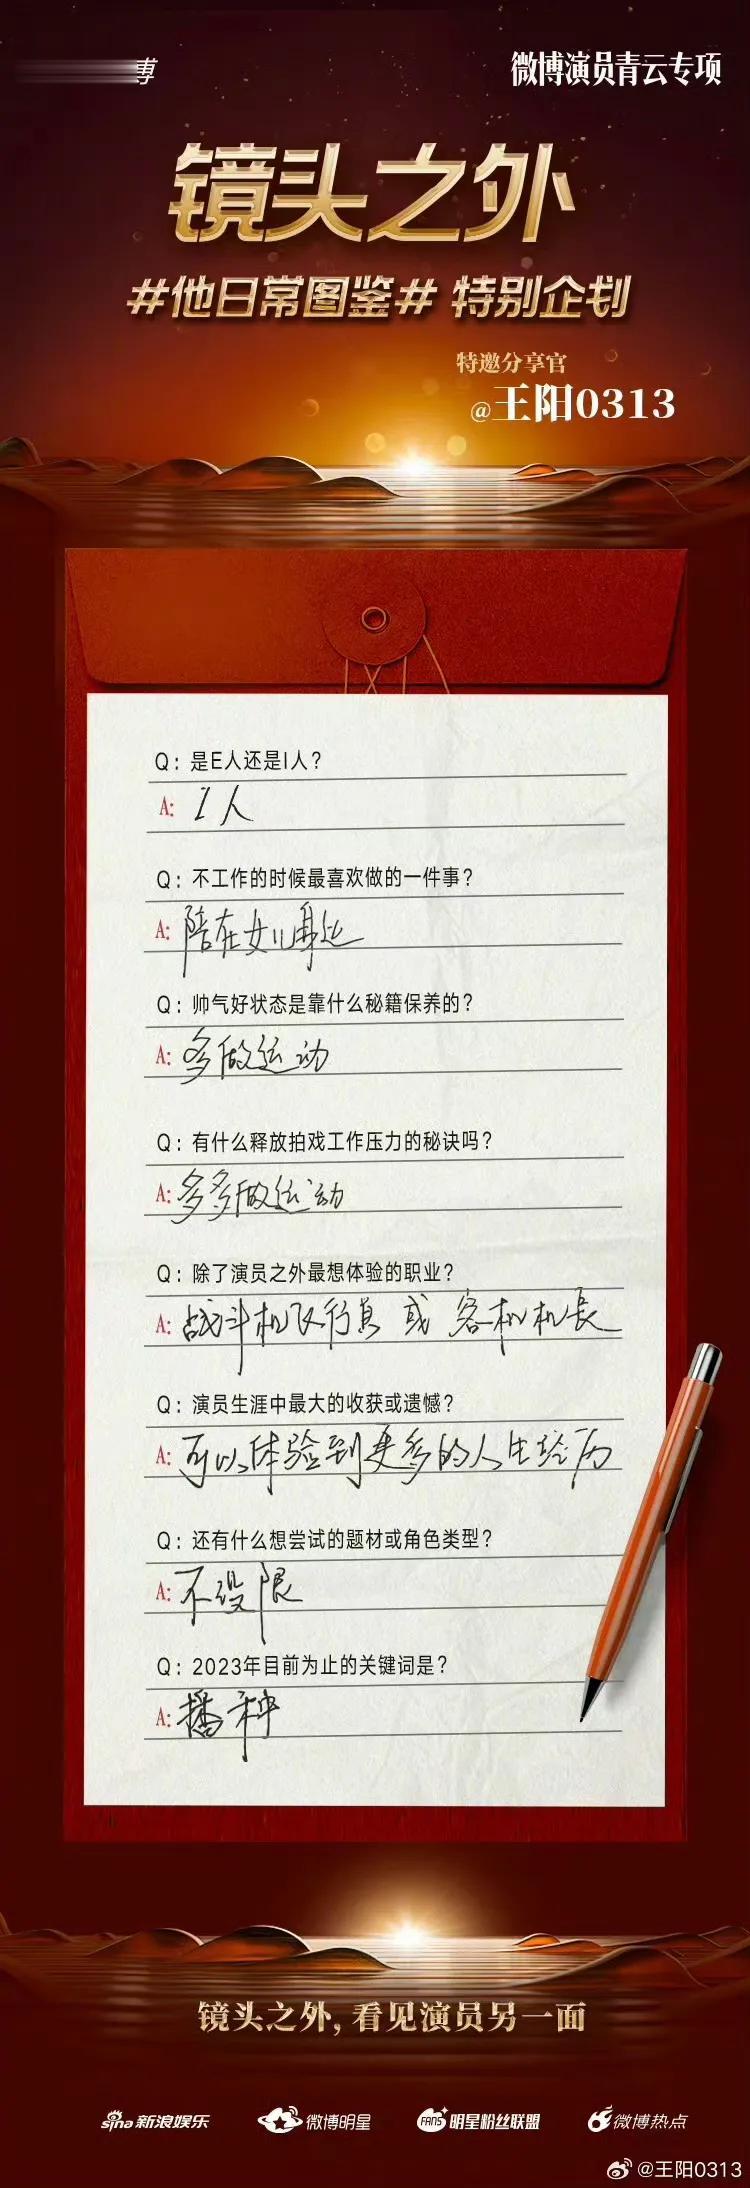 微博演员青云专项
镜头之外
#他日常图鉴# 特别企划
特邀分享官
@王阳0313
Q: 是E人还是I人?
A: I人
Q: 不工作的时候最喜欢做的一件事?
A: 陪在女儿身边
Q: 帅气好状态是靠什么秘籍保养的?
A: 多做运动
Q: 有什么释放拍戏工作压力的秘诀吗?
A: 多多做运动
Q: 除了演员之外最想体验的职业?
A: 战斗机飞行员 或 客机机长
Q: 演员生涯中最大的收获或遗憾?
A: 可以体验到更多的人生经历
Q: 还有什么想尝试的题材或角色类型?
A: 不设限
Q: 2023年目前为止的关键词是?
A: 播种
镜头之外, 看见演员另一面
sina 新浪娱乐 微博明星 FANS 明星粉丝联盟 微博热点
@王阳0313